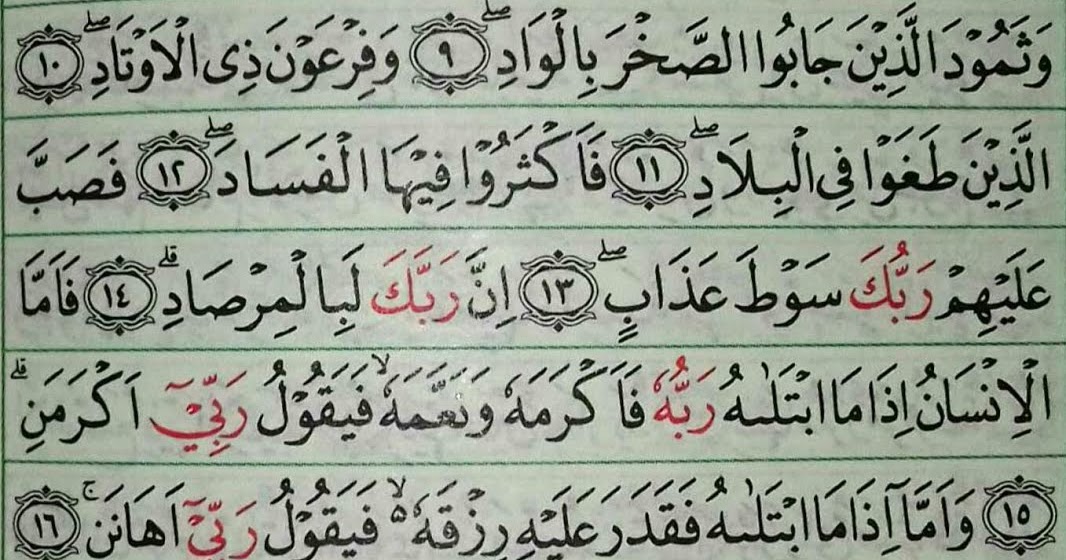 وَثَمُوْدَ الَّذِيْنَ جَابُوا الصَّخْرَ بِالْوَادِۖ ۝٩ وَفِرْعَوْنَ ذِى الْاَوْتَادِۖ ۝١٠
الَّذِيْنَ طَغَوْا فِى الْبِلَادِۖ ۝١١ فَاَكْثَرُوْا فِيْهَا الْفَسَادَۖ ۝١٢ فَصَبَّ
عَلَيْهِمْ رَبُّكَ سَوْطَ عَذَابٍۖ ۝١٣ اِنَّ رَبَّكَ لَبِالْمِرْصَادِۗ ۝١٤ فَاَمَّا
الْاِنْسَانُ اِذَا مَا ابْتَلٰىهُ رَبُّهٗ فَاَكْرَمَهٗ وَنَعَّمَهٗۙ فَيَقُوْلُ رَبِّيْٓ اَكْرَمَنِۗ
۝١٥ وَاَمَّآ اِذَا مَا ابْتَلٰىهُ فَقَدَرَ عَلَيْهِ رِزْقَهٗۙ ەۙ فَيَقُوْلُ رَبِّيْٓ اَهَانَنِۚ ۝١٦